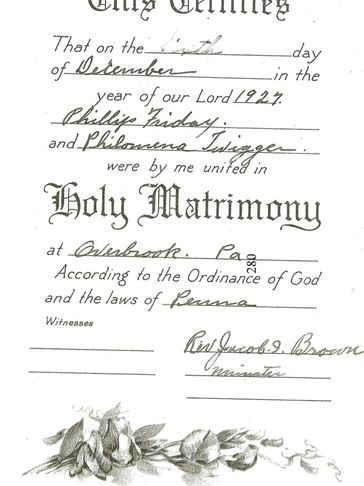 This Certifies
That on the day
of December in the
year of our Lord 1927.
Phillip Friday.
and Philomena Twigger.
were by me united in
Holy Matrimony
at Overbrook. Pa
280
According to the Ordinance of God
and the laws of Penna
Witnesses
Rev Jacob. I. Brown
Minister